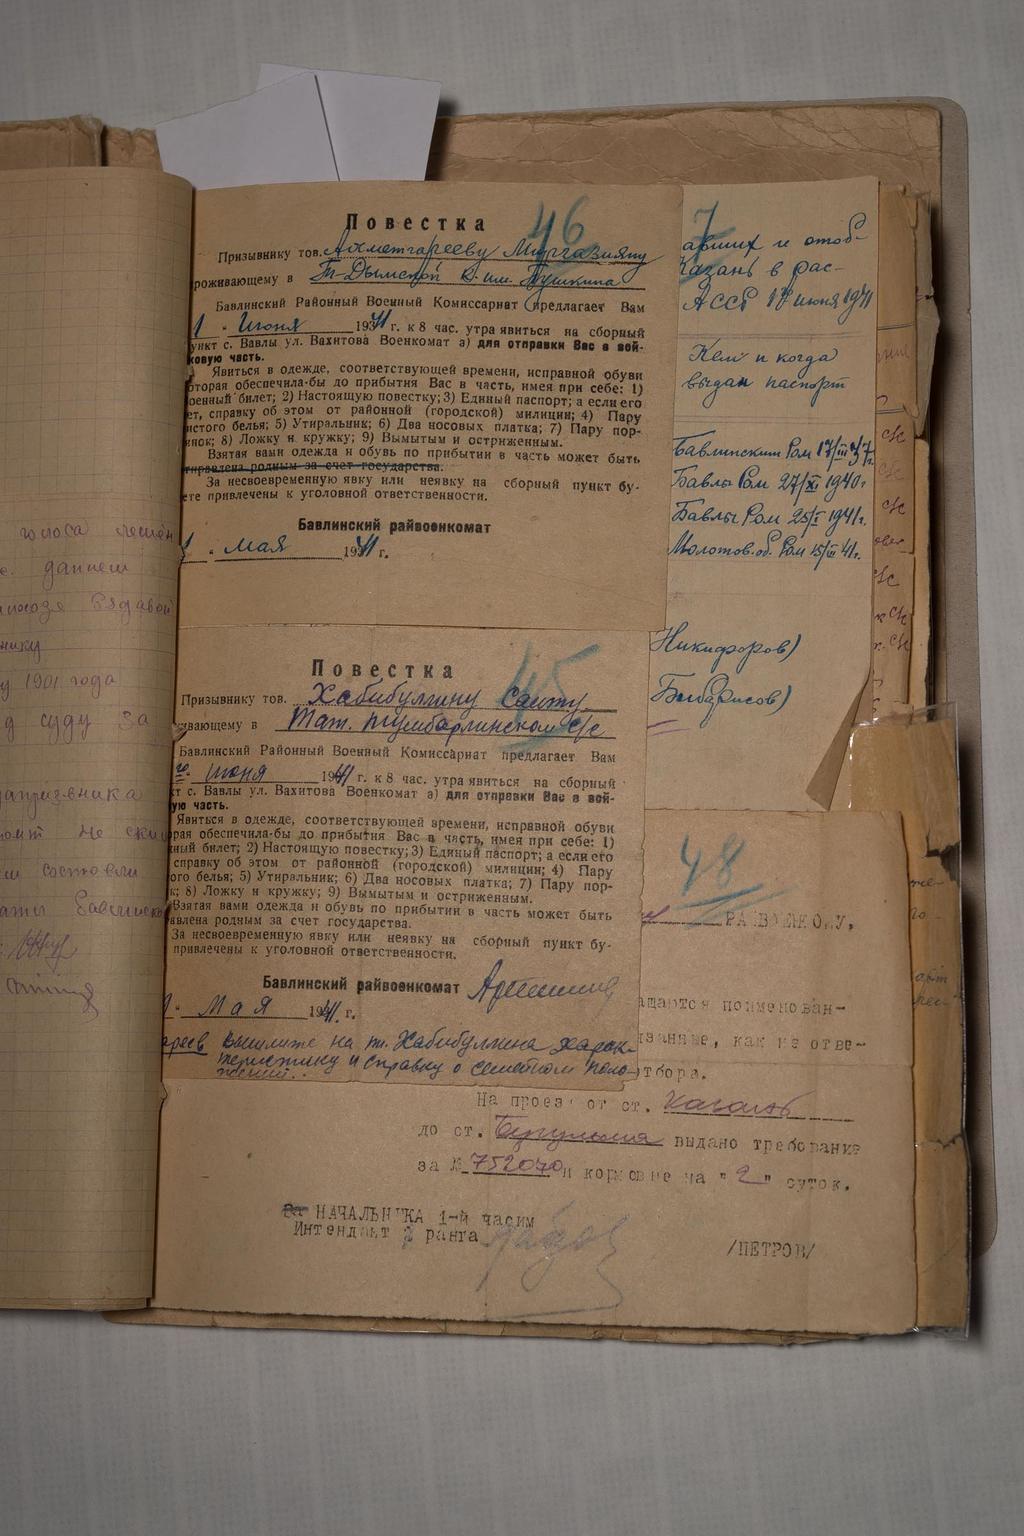 46
Повестка
Призывнику тов. Ахметгарееву Миргазияну
роживающему в Т-Дымской к. им. Пушкина
Бавлинский Районный Военный Комиссариат предлагает Вам
1 " Июня 1941 г. к 8 час. утра явиться на сборный
ункт с. Бавлы ул. Вахитова Военкомат а) для отправки Вас в вой-
ковую часть.
Явиться в одежде, соответствующей времени, исправной обуви
оторая обеспечила-бы до прибытия Вас в часть, имея при себе: 1)
оенный билет; 2) Настоящую повестку; 3) Единый паспорт; а если его
ет, справку об этом от районной (городской) милиции; 4) Пару
истого белья; 5) Утиральник; 6) Два носовых платка; 7) Пару пор-
янок; 8) Ложку и кружку; 9) Вымытым и остриженным.
Взятая вами одежда и обувь по прибытии в часть может быть
тправлена родным за счет государства.
За несвоевременную явку или неявку на сборный пункт бу-
ете привлечены к уголовной ответственности.
Бавлинский райвоенкомат
" мая 1941 г.
45
Повестка
Призывнику тов. Хабибуллину Саиту
ивающему в Тат. Тумбарлинском с/с
Бавлинский Районный Военный Комиссариат предлагает Вам
июня 1941 г. к 8 час. утра явиться на сборный
кт с. Бавлы ул. Вахитова Военкомат а) для отправки Вас в вой-
ую часть.
Явиться в одежде, соответствующей времени, исправной обуви
рая обеспечила-бы до прибытия Вас в часть, имея при себе: 1)
ный билет; 2) Настоящую повестку; 3) Единый паспорт; а если его
справку об этом от районной (городской) милиции; 4) Пару
ого белья; 5) Утиральник; 6) Два носовых платка; 7) Пару пор-
к; 8) Ложку и кружку; 9) Вымытым и остриженным.
Взятая вами одежда и обувь по прибытии в часть может быть
авлена родным за счет государства.
За несвоевременную явку или неявку на сборный пункт бу-
привлечены к уголовной ответственности.
Бавлинский райвоенкомат
" Мая 1941 г.
вышлите на т. Хабибуллина харак-
теристику и справку о семейном поло-
жении.
7
авших и отоб-
Казань в рас-
АССР 17 июня 1941
Кем и когда
выдан паспорт
Бавлинским Ром 17/III 37г.
Бавлы Ром 27/XI 1940г.
Бавлы Ром 25/I 1941г.
Молотов. об. Ром 15/III 41г.
Никифоров)
48
РАЙВОЕНКОМУ.
ащаются поименован-
занные, как не отве-
тбора.
На проезд от ст. Казань
до ст. Бугульма выдано требование
за № 752070 и кормовые на "2" суток.
За НАЧАЛЬНИКА 1-й части
Интендант ранга
/ПЕТРОВ/
голоса
данием
нику
у 1901 года
д суду за
апризывника
не
составили